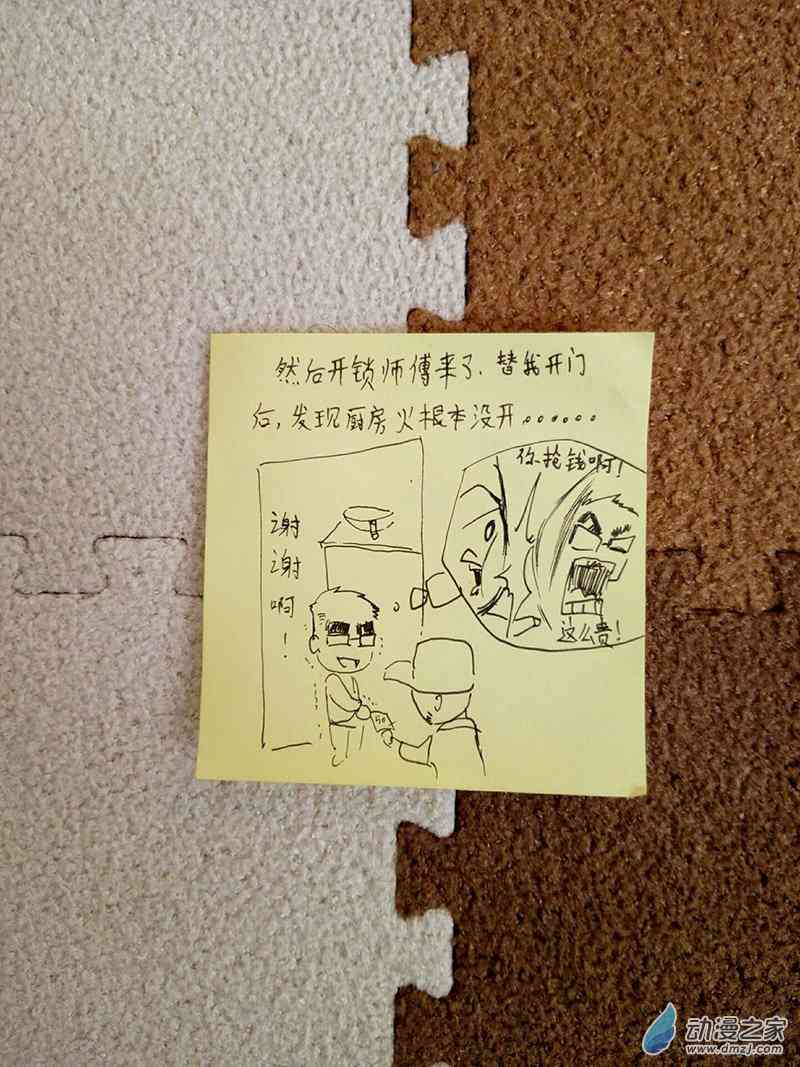 然后开锁师傅来了.替我开门
后,发现厨房火根本没开......
你抢钱啊!
这么贵!
谢谢啊!
50
动漫之家
www.dmzj.com